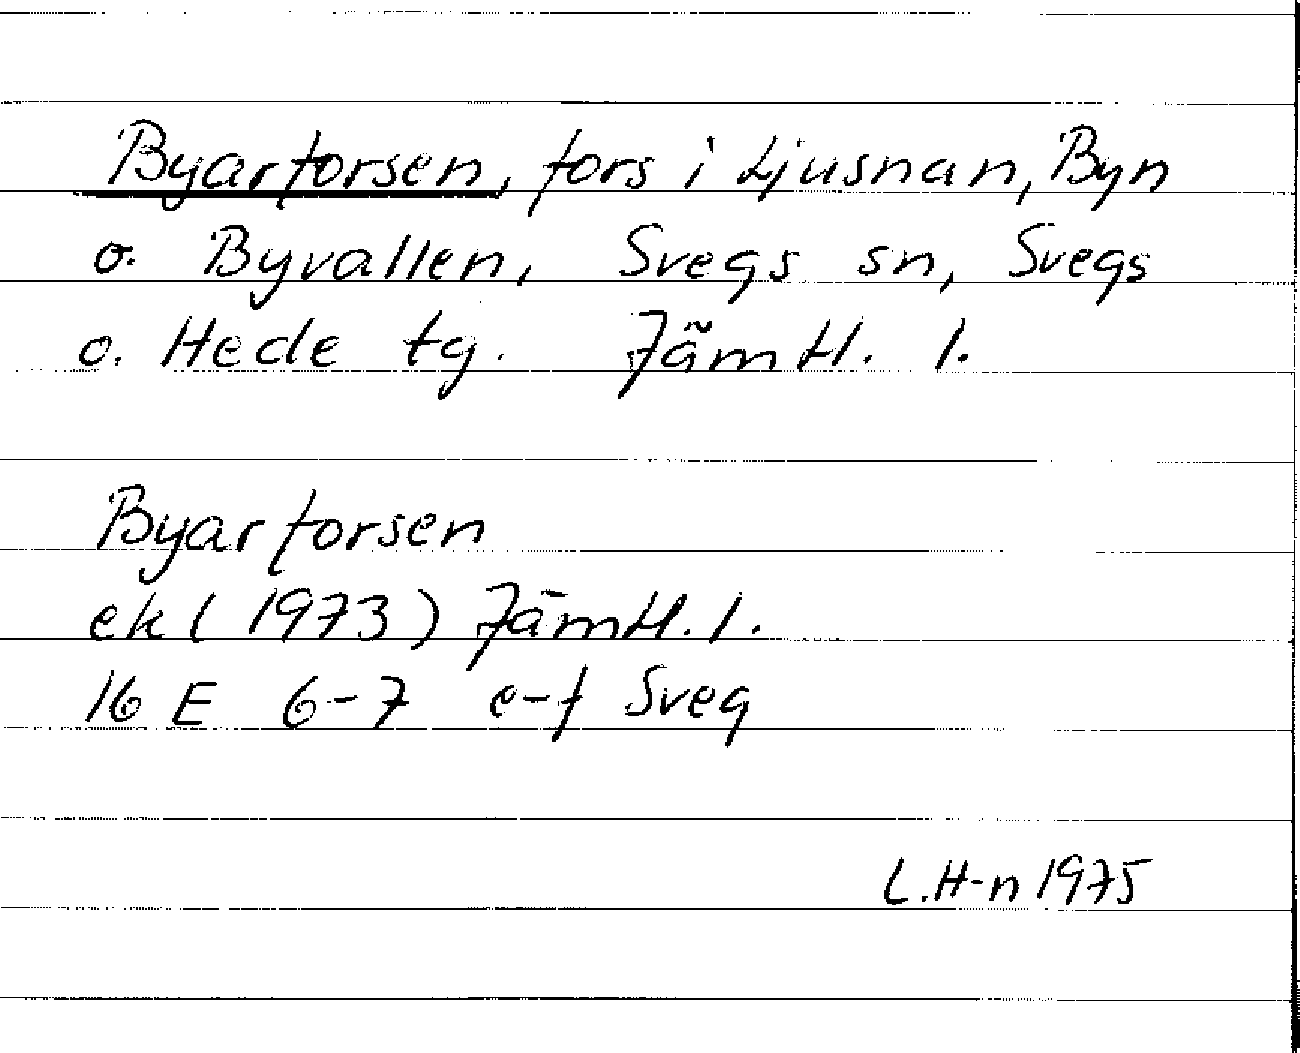 Byarforsen, fors i Ljusnan, Byn
o. Byvallen, Svegs sn, Svegs
o. Hede tg. Jämtl. l.
Byarforsen
ek (1973) Jämtl. l.
16 E 6-7 e-f Sveg
L.H-n 1975